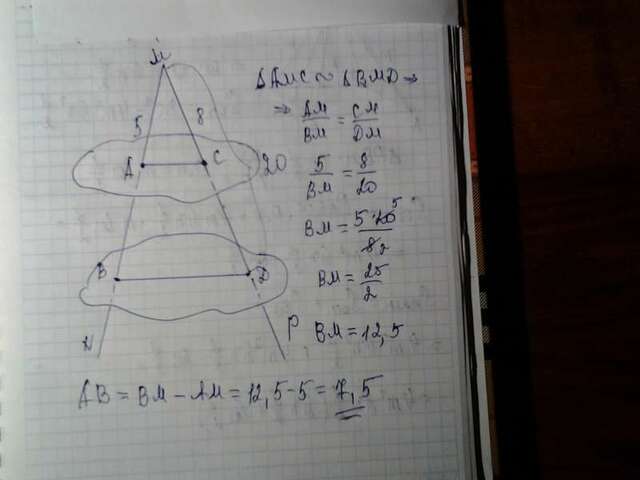 M
5
8
A
C
20
B
D
N
P
ΔAMC ∼ ΔBMD ⇒
⇒ AM/BM = CM/DM
5/BM = 8/20
BM = 5·20 5/8 2
BM = 25/2
BM = 12,5
AB = BM − AM = 12,5 − 5 = 7,5